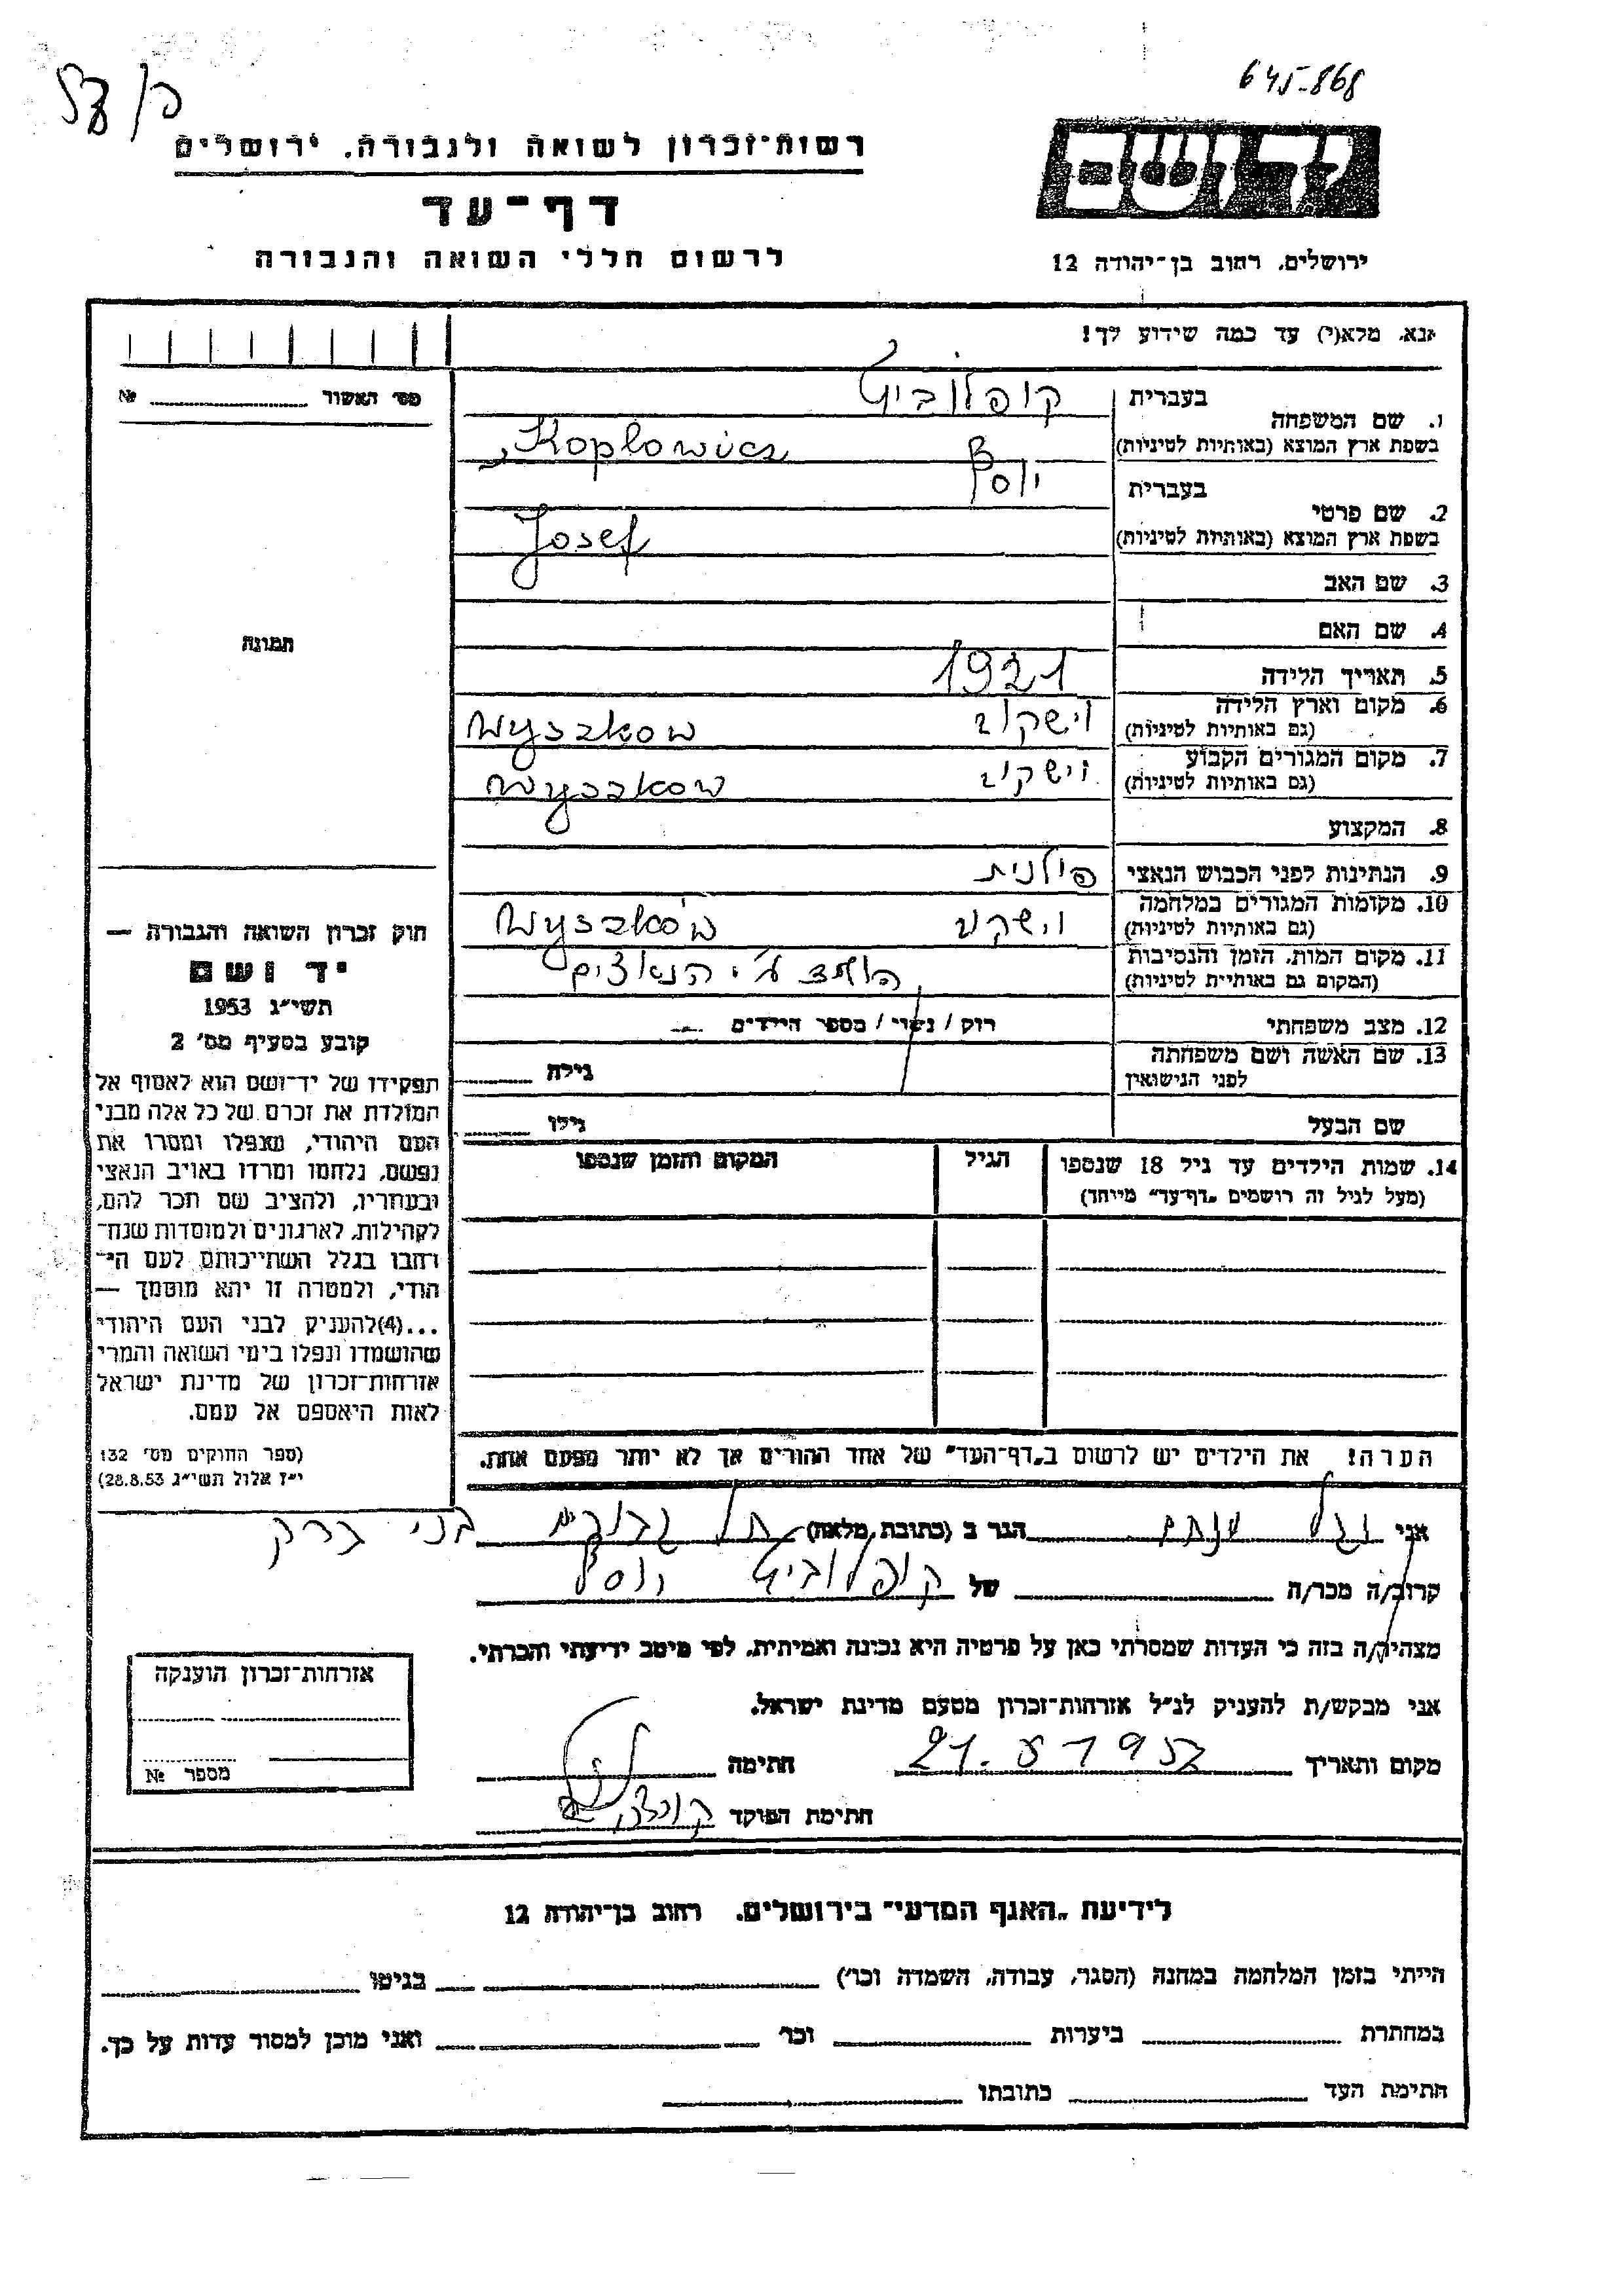 645-868
רשות־זכרון לשואה ולגבורה, ירושלים
דף־עד
לרשום חללי השואה והגבורה
ירושלים, רחוב בן־יהודה 12
נא, מלא(י) עד כמה שידוע לך!
מס' האשור № 
תמונה
1. שם המשפחה בעברית קופלוביץ
בשפת ארץ המוצא (באותיות לטיניות) Koplowicz
2. שם פרטי בעברית יוסף
בשפת ארץ המוצא (באותיות לטיניות) Josef
3. שם האב
4. שם האם
5. תאריך הלידה 1921
6. מקום וארץ הלידה וישקוב Wyszkow
(גם באותיות לטיניות)
7. מקום המגורים הקבוע וישקוב Wyszkow
(גם באותיות לטיניות)
8. המקצוע
9. הנתינות לפני הכבוש הנאצי פולנית
10. מקומות המגורים במלחמה וישקוב Wyszków
(גם באותיות לטיניות)
11. מקום המות, הזמן והנסיבות ע"י הנאצים
(המקום גם באותיות לטיניות)
12. מצב משפחתי רוק / נשוי / מספר הילדים
13. שם האשה ושם משפחתה גילה
לפני הנישואין
שם הבעל גילו
14. שמות הילדים עד גיל 18 שנספו הגיל המקום והזמן שנספו
(מעל לגיל זה רושמים "דף־עד" מיוחד)
הערה! את הילדים יש לרשום ב"דף־העד" של אחד ההורים אך לא יותר מפעם אחת.
חוק זכרון השואה והגבורה —
יד ושם
תשי"ג 1953
קובע בסעיף מס' 2
תפקידו של יד־ושם הוא לאסוף אל
המולדת את זכרם של כל אלה מבני
העם היהודי, שנפלו ומסרו את
נפשם, נלחמו ומרדו באויב הנאצי
ובעוזריו, ולהציב שם וזכר להם,
לקהילות, לארגונים ולמוסדות שנח־
רבו בגלל השתייכותם לעם הי־
הודי, ולמטרה זו יהא מוסמך —
...(4)להעניק לבני העם היהודי
שהושמדו ונפלו בימי השואה והמרי
אזרחות־זכרון של מדינת ישראל
לאות היאספם אל עמם.
(ספר החוקים מס' 132
י"ז אלול תשי"ג 28.8.53)
אני הגר ב (כתובת מלאה) בני ברק
קרוב/ה מכר/ה של קופלוביץ יוסף
מצהיר/ה בזה כי העדות שמסרתי כאן על פרטיה היא נכונה ואמיתית, לפי מיטב ידיעתי והכרתי.
אני מבקש/ת להעניק לנ"ל אזרחות־זכרון מטעם מדינת ישראל.
מקום ותאריך חתימה
חתימת הפוקד
אזרחות־זכרון הוענקה
מספר №
לידיעת "האגף המדעי" בירושלים, רחוב בן־יהודה 12
הייתי בזמן המלחמה במחנה (הסגר, עבודה, השמדה וכו') בגיטו
במחתרת ביערות וכו' ואני מוכן למסור עדות על כך.
חתימת העד כתובתו